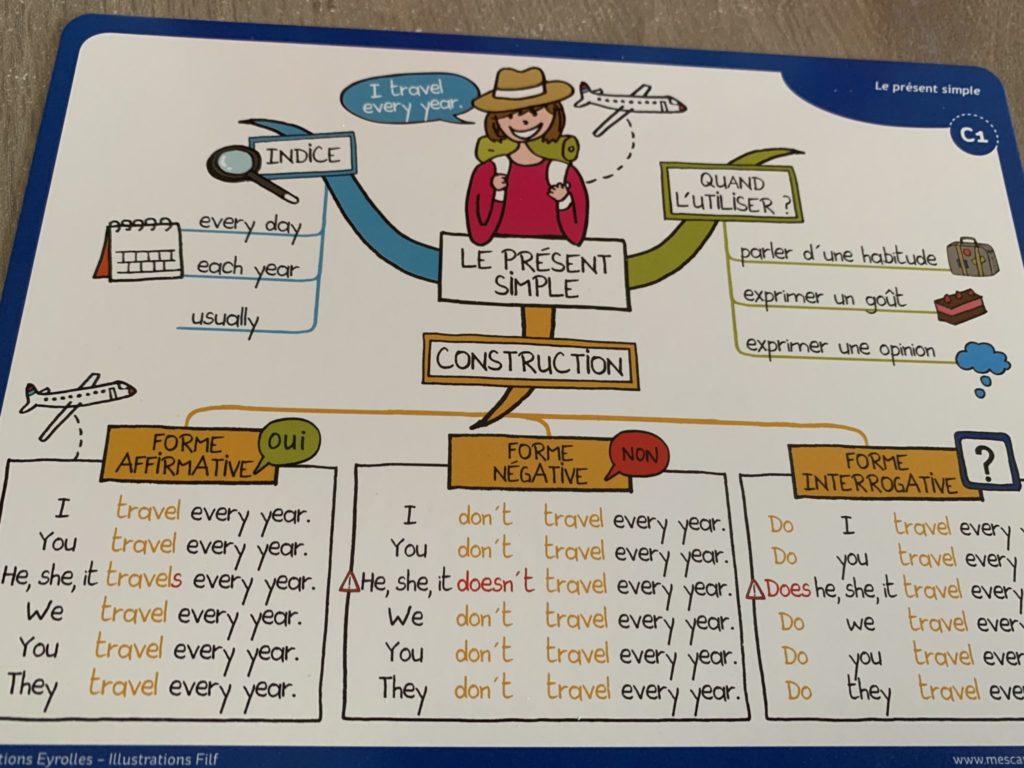 Le présent simple
C1
I travel
every year.
INDICE
every day
each year
usually
QUAND
L'UTILISER ?
parler d'une habitude
exprimer un goût
exprimer une opinion
LE PRÉSENT
SIMPLE
CONSTRUCTION
FORME
AFFIRMATIVE
OUI
I travel every year.
You travel every year.
He, she, it travels every year.
We travel every year.
You travel every year.
They travel every year.
FORME
NÉGATIVE
NON
I don't travel every year.
You don't travel every year.
He, she, it doesn't travel every year.
We don't travel every year.
You don't travel every year.
They don't travel every year.
FORME
INTERROGATIVE
?
Do I travel every
Do you travel every
Does he, she, it travel every
Do we travel every
Do you travel ever
Do they travel eve
tions Eyrolles – Illustrations Filf
www.mesca